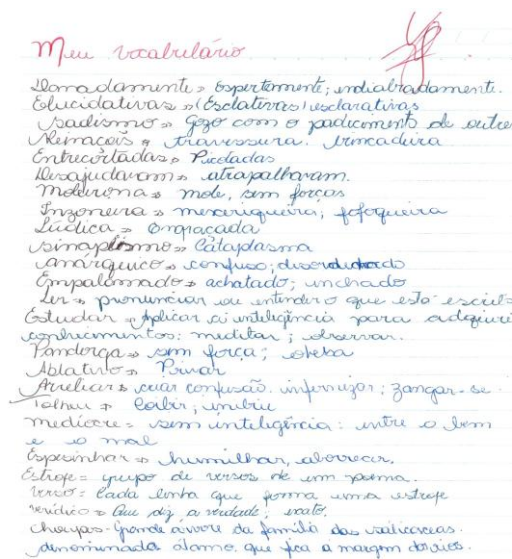 Meu vocabulário
Danadamente = espertamente; endiabradamente.
Elucidativas = (Esclativas) esclarativas
Sadismo = Gozo com o padicimento de outre
Reinações = travessura. brincadeira
Entrecortadas = Picotadas
Desajudavam = atrapalhavam.
Moleirona = mole, sem forças
Inzoneira = mexeriqueira; fofoqueira
Lúdica = Engraçada
Sinapismo = Cataplasma
anárquico = confuso; desordenado
Empalamado = achatado; inchado
Ler = pronunciar ou entender o que está escrito
Estudar = Aplicar a inteligência para adquirir
conhecimentos: meditar; observar.
Pandorga = sem força; obesa
Ablativo = Privar
Arreliar = criar confusão. infernizar; zangar-se
Tolheu = Coibir; inibiu
medíocre = sem inteligência: entre o bem
e o mal
Espezinhar = humilhar, aborrecer.
Estrofe = grupo de versos de um poema.
verso = Cada linha que forma uma estrofe
verídico = Que diz a verdade; exato.
choupos - Grande árvore da família das salicáceas.
denominada álamo, que fica a margem do rios.